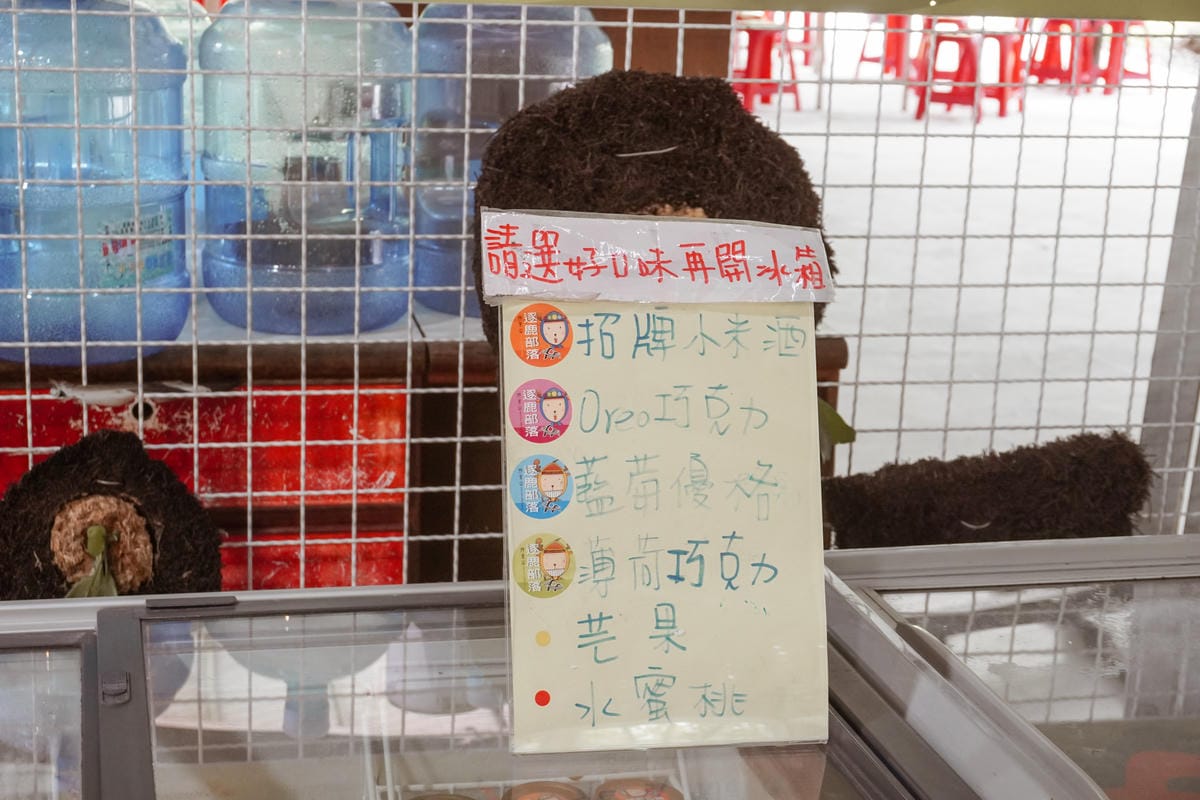 請選好口味再開冰箱
逐鹿部落 招牌小米酒
逐鹿部落 Oreo巧克力
逐鹿部落 藍莓優格
逐鹿部落 薄荷巧克力
芒果
水蜜桃